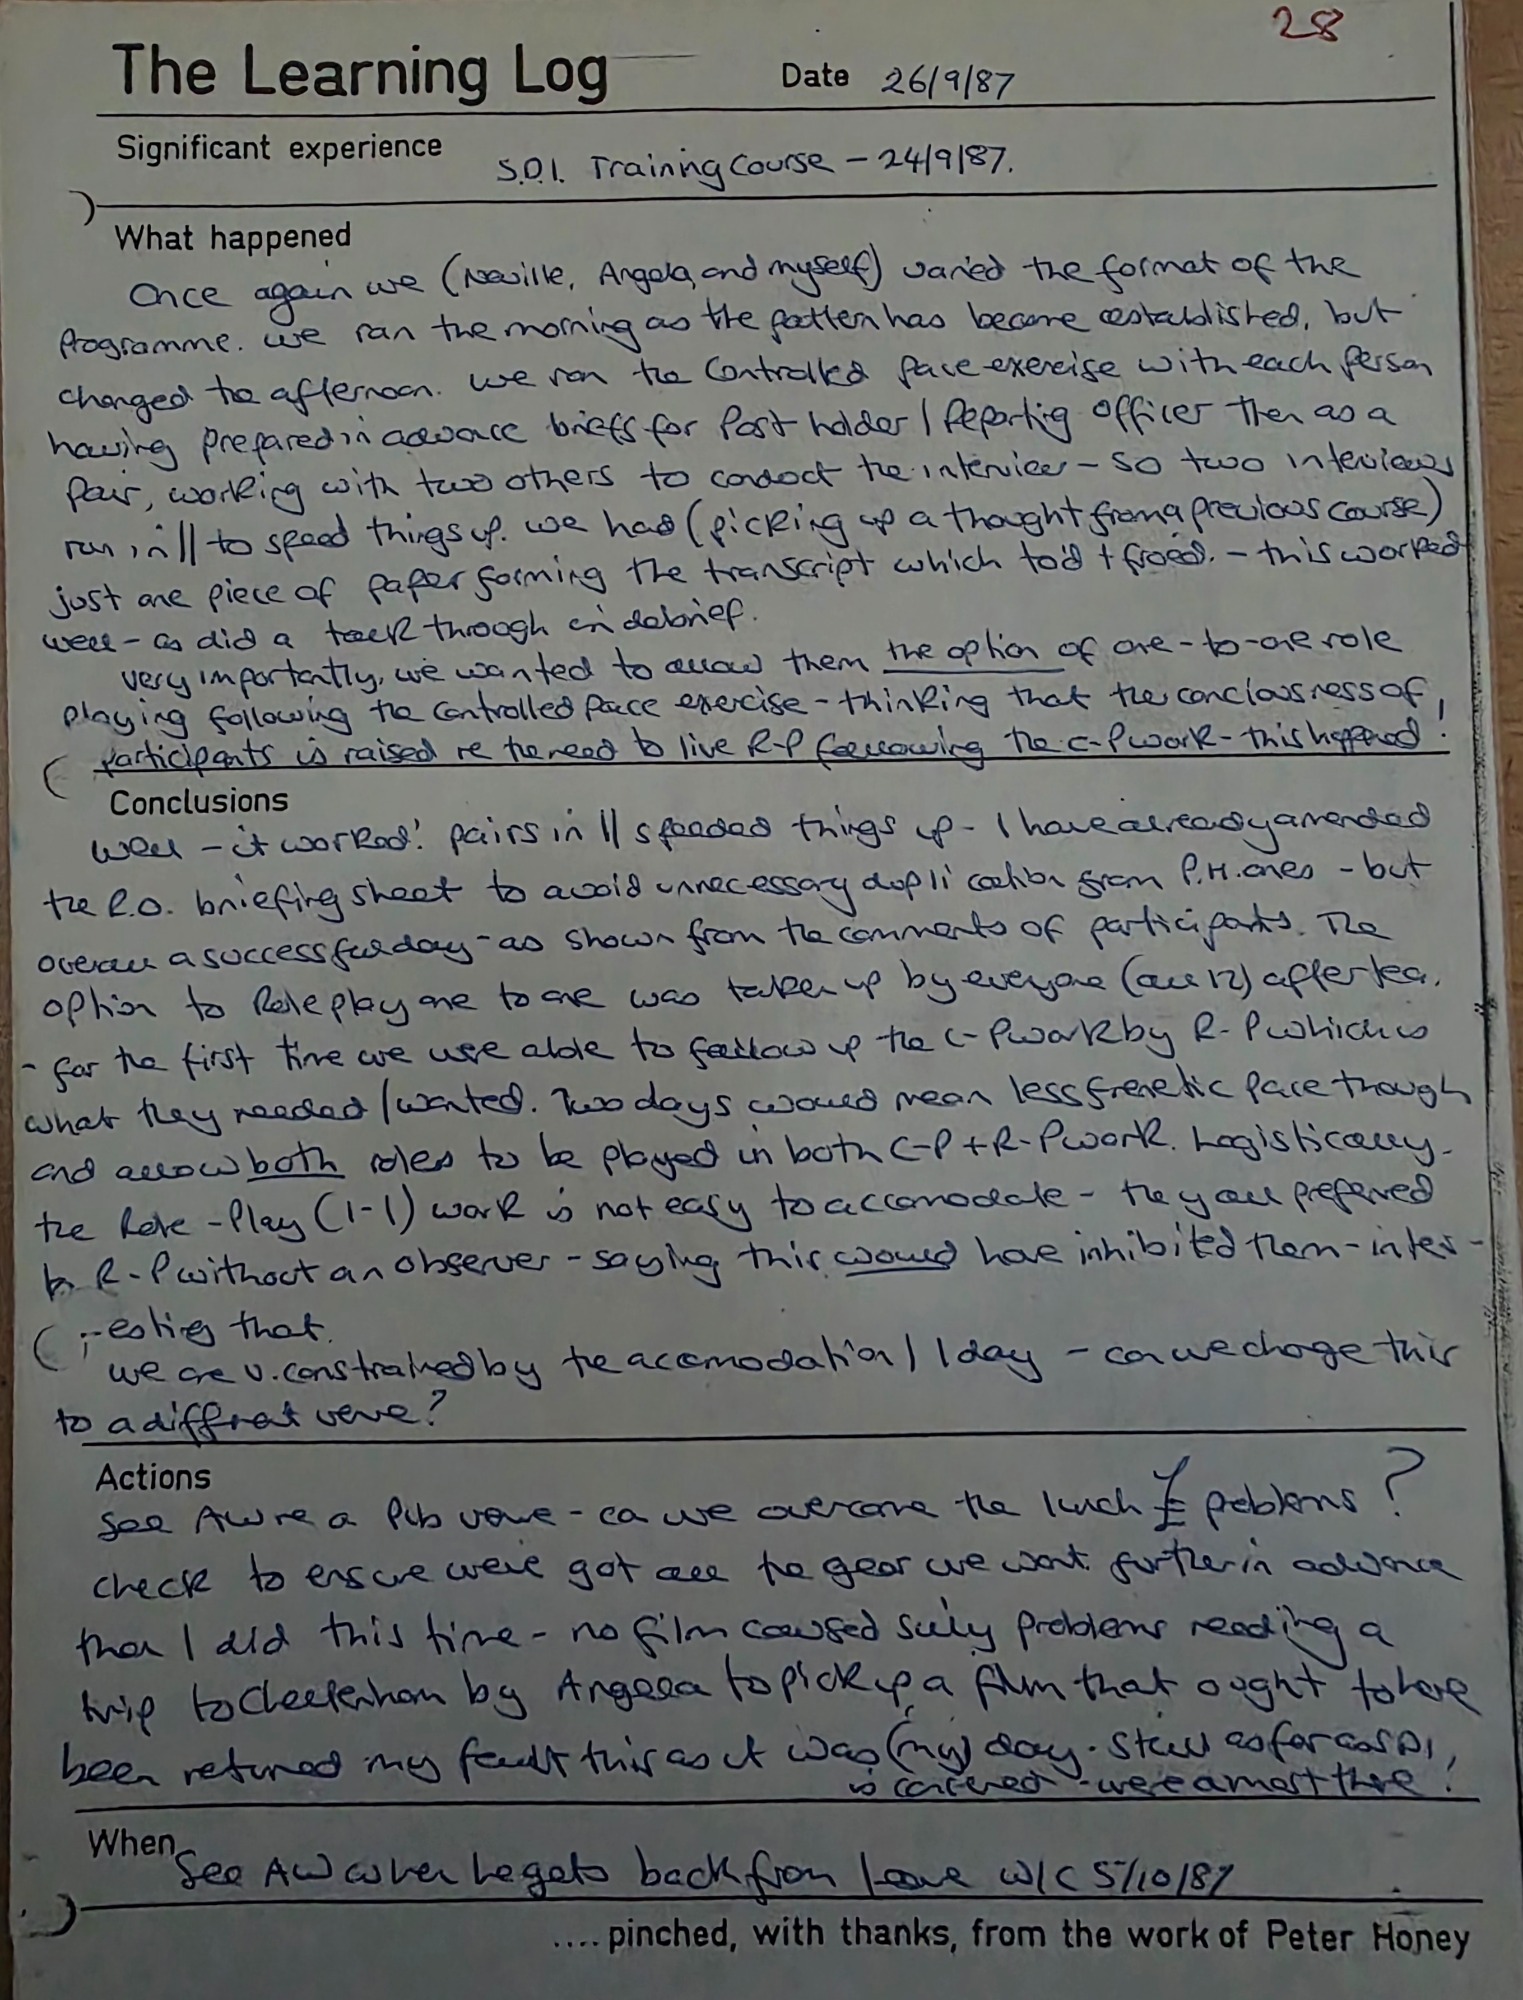 28
The Learning Log Date 26/9/87
Significant experience S.D.I. Training Course - 24/9/87.
What happened
Once again we (Neville, Angela, and myself) varied the format of the
Programme. We ran the morning as the pattern has become established, but
changed the afternoon. We ran the Controlled Pace exercise with each person
having prepared in advance briefs for Post holder / Reporting Officer then as a
Pair, working with two others to conduct the interview - so two interviews
run in // to speed things up. We had (picking up a thought from a previous course)
just one piece of paper forming the transcript which to'd + fro'ed. - this worked
well - as did a talk through in debrief.
Very importantly, we wanted to allow them the option of one-to-one role
playing following the Controlled Pace exercise - thinking that the conciousness of
participants is raised re the need to live R-P following the C-P work - this happened!
Conclusions
Well - it worked! pairs in // speeded things up - I have already amended
the R.O. briefing sheet to avoid unnecessary duplication from P.H. ones - but
overall a successful day - as shown from the comments of participants. The
option to Role play one to one was taken up by everyone (all 12) after tea.
- for the first time we were able to follow up the C-P work by R-P which is
what they needed / wanted. Two days would mean less frenetic pace though
and allow both roles to be played in both C-P + R-P work. Logistically
the Role-Play (1-1) work is not easy to accomodate - they all preferred
to R-P without an observer - saying this would have inhibited them - inter-
-esting that.
We are v. constrained by the accomodation / 1 day - can we change this
to a different venue?
Actions
See AW re a Pub venue - can we overcome the lunch £ problems?
Check to ensure we've got all the gear we want further in advance
than I did this time - no film caused silly problems needing a
trip to Cheltenham by Angela to pick up a film that ought to have
been returned my fault this as it was (my) day. Still as far as SDI,
is concerned - we're almost there!
When
See AW when he gets back from leave W/C 5/10/87
.... pinched, with thanks, from the work of Peter Honey